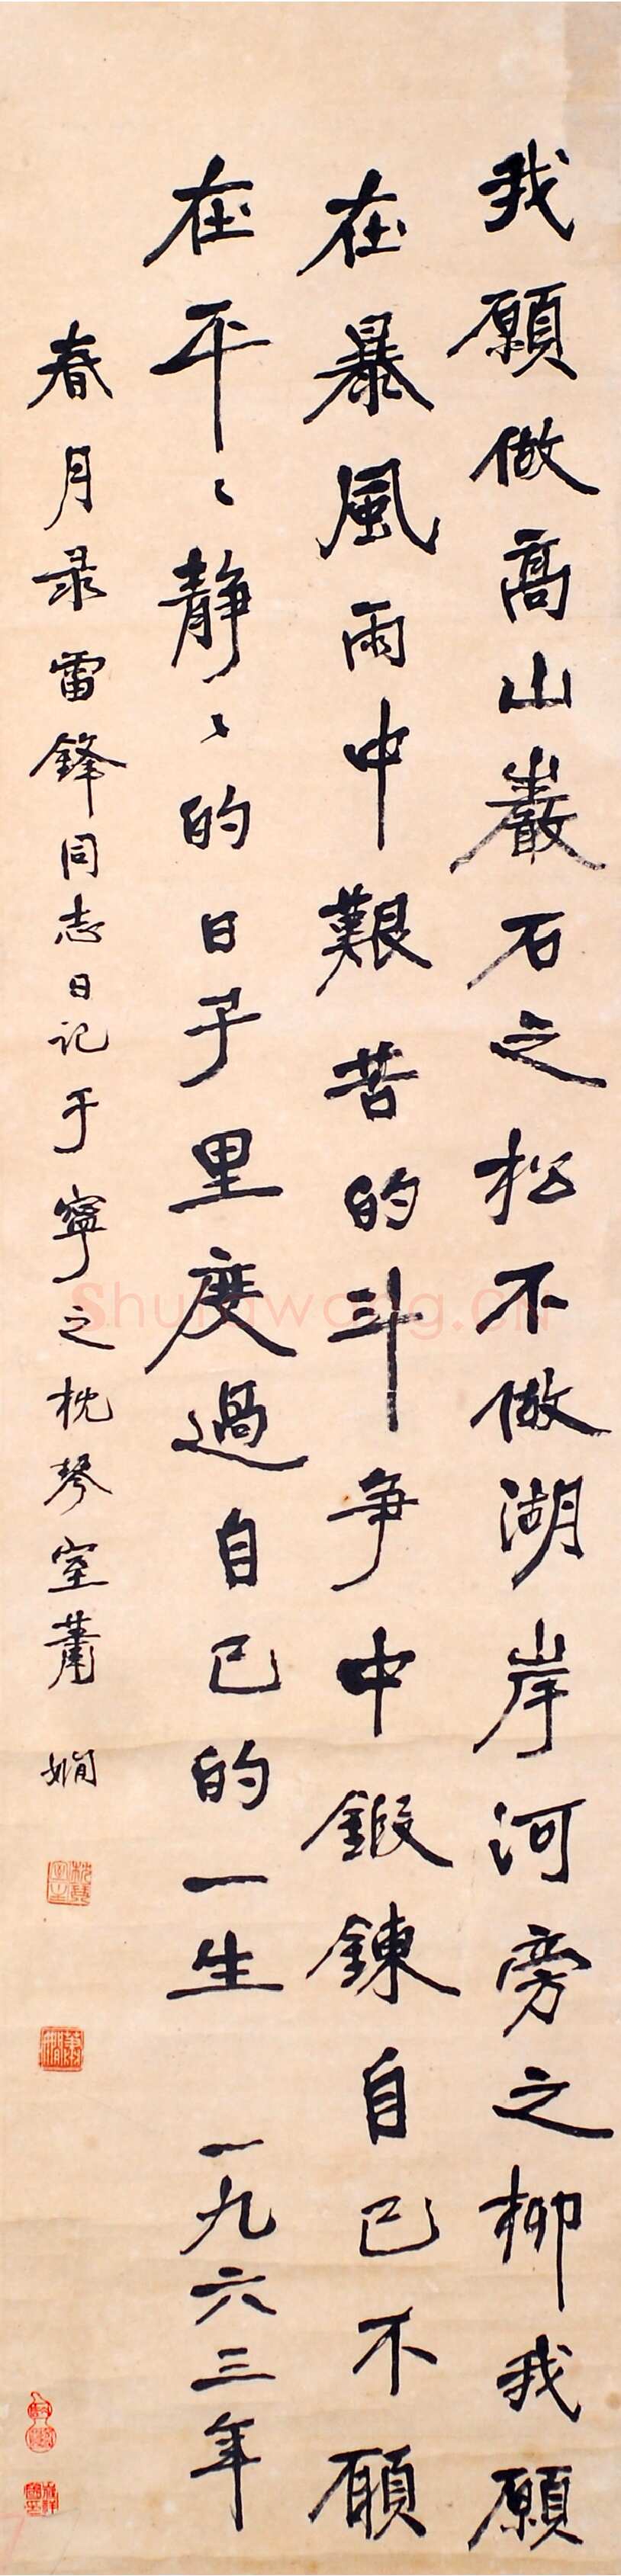 我願做高山巖石之松不做湖岸河旁之柳我願
在暴風雨中艱苦的斗争中鍛鍊自己不願
在平〻静〻的日子里度過自己的一生 一九六三年
春月录雷鋒同志日記于寧之枕琴室蕭嫻
枕琴室主
蕭嫻
Shufawang.CN